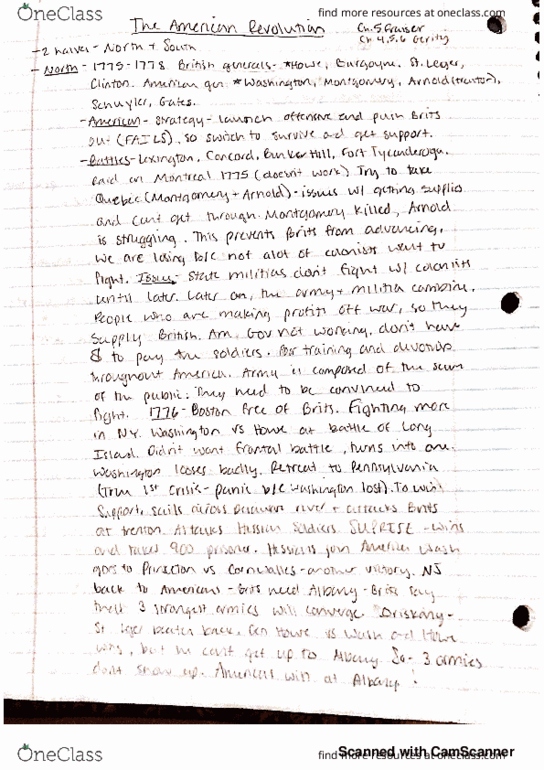 OneClass
find more resources at oneclass.com
The American Revolution
Ch. 5 Fraser
Ch 4,5,6 Gerity
-2 halves - North + South
- North - 1775-1778 British generals - *Howe, Burgoyne, St. Leger,
Clinton. American gen *Washington, Montgomery, Arnold (traitor),
Schuyler, Gates.
- American - strategy - launch offensive and push Brits
out (FAILS), so switch to survive and get support.
- Battles - Lexington, Concord, Bunker Hill, Fort Tyconderoga.
Raid on Montreal 1775 (doesn't work) Try to take
Quebec (Montgomery + Arnold) - issues w/ getting supplies
and can't get through. Montgomery killed, Arnold
is struggling. This prevents Brits from advancing.
we are losing b/c not alot of colonists want to
fight. Issues - State militias don't fight w/ colonists
until later. Later on, the army + militia combine.
People who are making profits off war, so they
supply British. Am. Gov not working, don't have
$ to pay the soldiers. Poor training and devotion
throughout America. Army is composed of the scum
of the public. They need to be convinced to
fight. 1776 - Boston free of Brits. Fighting more
in NY. Washington vs Howe at battle of Long
Island. Didn't want frontal battle, turns into one.
Washington loses badly. Retreat to Pennsylvania
1st crisis - panic b/c Washington lost). To win
support, sails across river + attacks Brits
at trenton. Attacks Hessian Soldiers. SUPRISE - wins
and takes 900 prisoner. Hessians join America. Wash
goes to Princeton vs Cornwallis - another victory. NJ
back to Americans - Brits need Albany - Brits say
their 3 strongest armies will converge. Oriskany -
St leger beaten back. Gen Howe vs Wash and Howe
wins, but he can't get up to Albany. So - 3 armies
don't show up. Americans win at Albany!
OneClass
find more resources at oneclass.com
Scanned with CamScanner